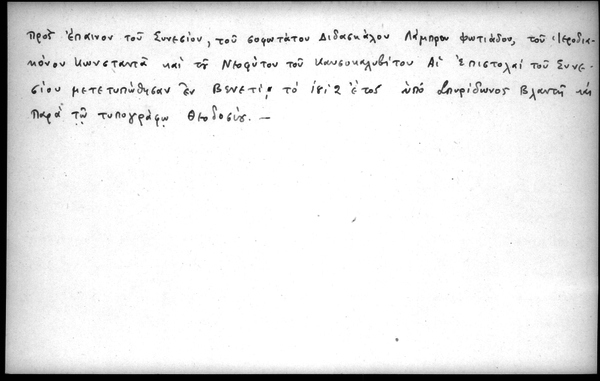 πρὸς ἔπαινον τοῦ Συνεσίου, τοῦ σοφωτάτου Διδασκάλου Λάμπρου Φωτιάδου, τοῦ Ἱεροδια-
κόνου Κωνσταντᾶ καὶ τοῦ Νεοφύτου τοῦ Καυσοκαλυβίτου Αἱ Ἐπιστολαί τοῦ Συνε-
σίου μετετυπώθησαν ἐν Βενετίᾳ τὸ 1812 ἔτος ὑπὸ Σπυρίδωνος Βλαντῆ
παρὰ τῷ τυπογράφῳ Θεοδοσίῳ. —